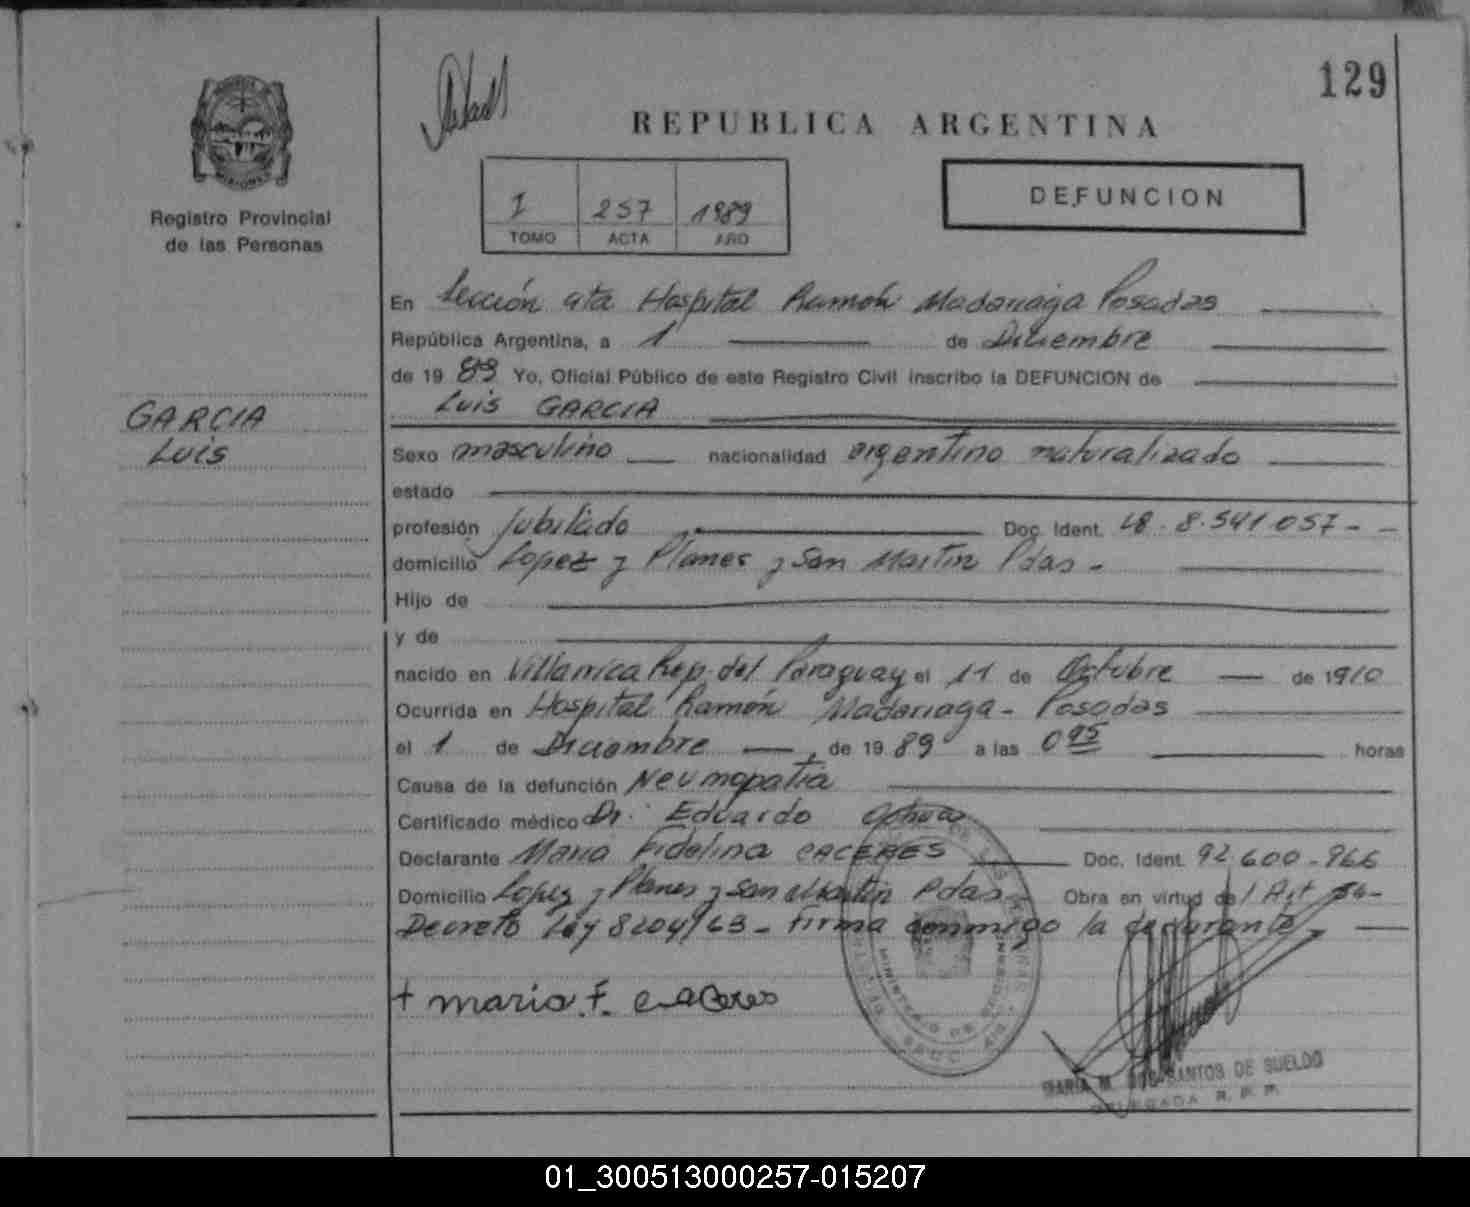 129
REPUBLICA ARGENTINA
DEFUNCION
I 257 1989
TOMO ACTA AÑO
Registro Provincial
de las Personas
GARCIA
Luis
En Sección 4ta Hospital Ramón Madariaga Posadas
República Argentina, a 1 de Diciembre
de 19 89 Yo, Oficial Público de este Registro Civil inscribo la DEFUNCION de
Luis GARCIA
Sexo masculino nacionalidad argentino naturalizado
estado
profesión Jubilado Doc. Ident. 8.541.057
domicilio Lopez y Planes y San Martín Pdas -
Hijo de
y de
nacido en Villarrica Rep. del Paraguay el 11 de Octubre de 1910
Ocurrida en Hospital Ramón Madariaga - Posadas
el 1 de Diciembre de 19 89 a las horas
Causa de la defunción Neumopatía
Certificado médico Dr. Eduardo Ochoa
Declarante Maria Fidelina CACERES Doc. Ident. 92.600.966
Domicilio Lopez y Planes y San Martín Pdas Obra en virtud del Art
Decreto Ley 8204/63 - firma conmigo la declarante
+ maria F. caceres
MINISTERIO DE GOBIERNO
MARIA M. DOS SANTOS DE SUELDO
DELEGADA R. P. P.
01_300513000257-015207